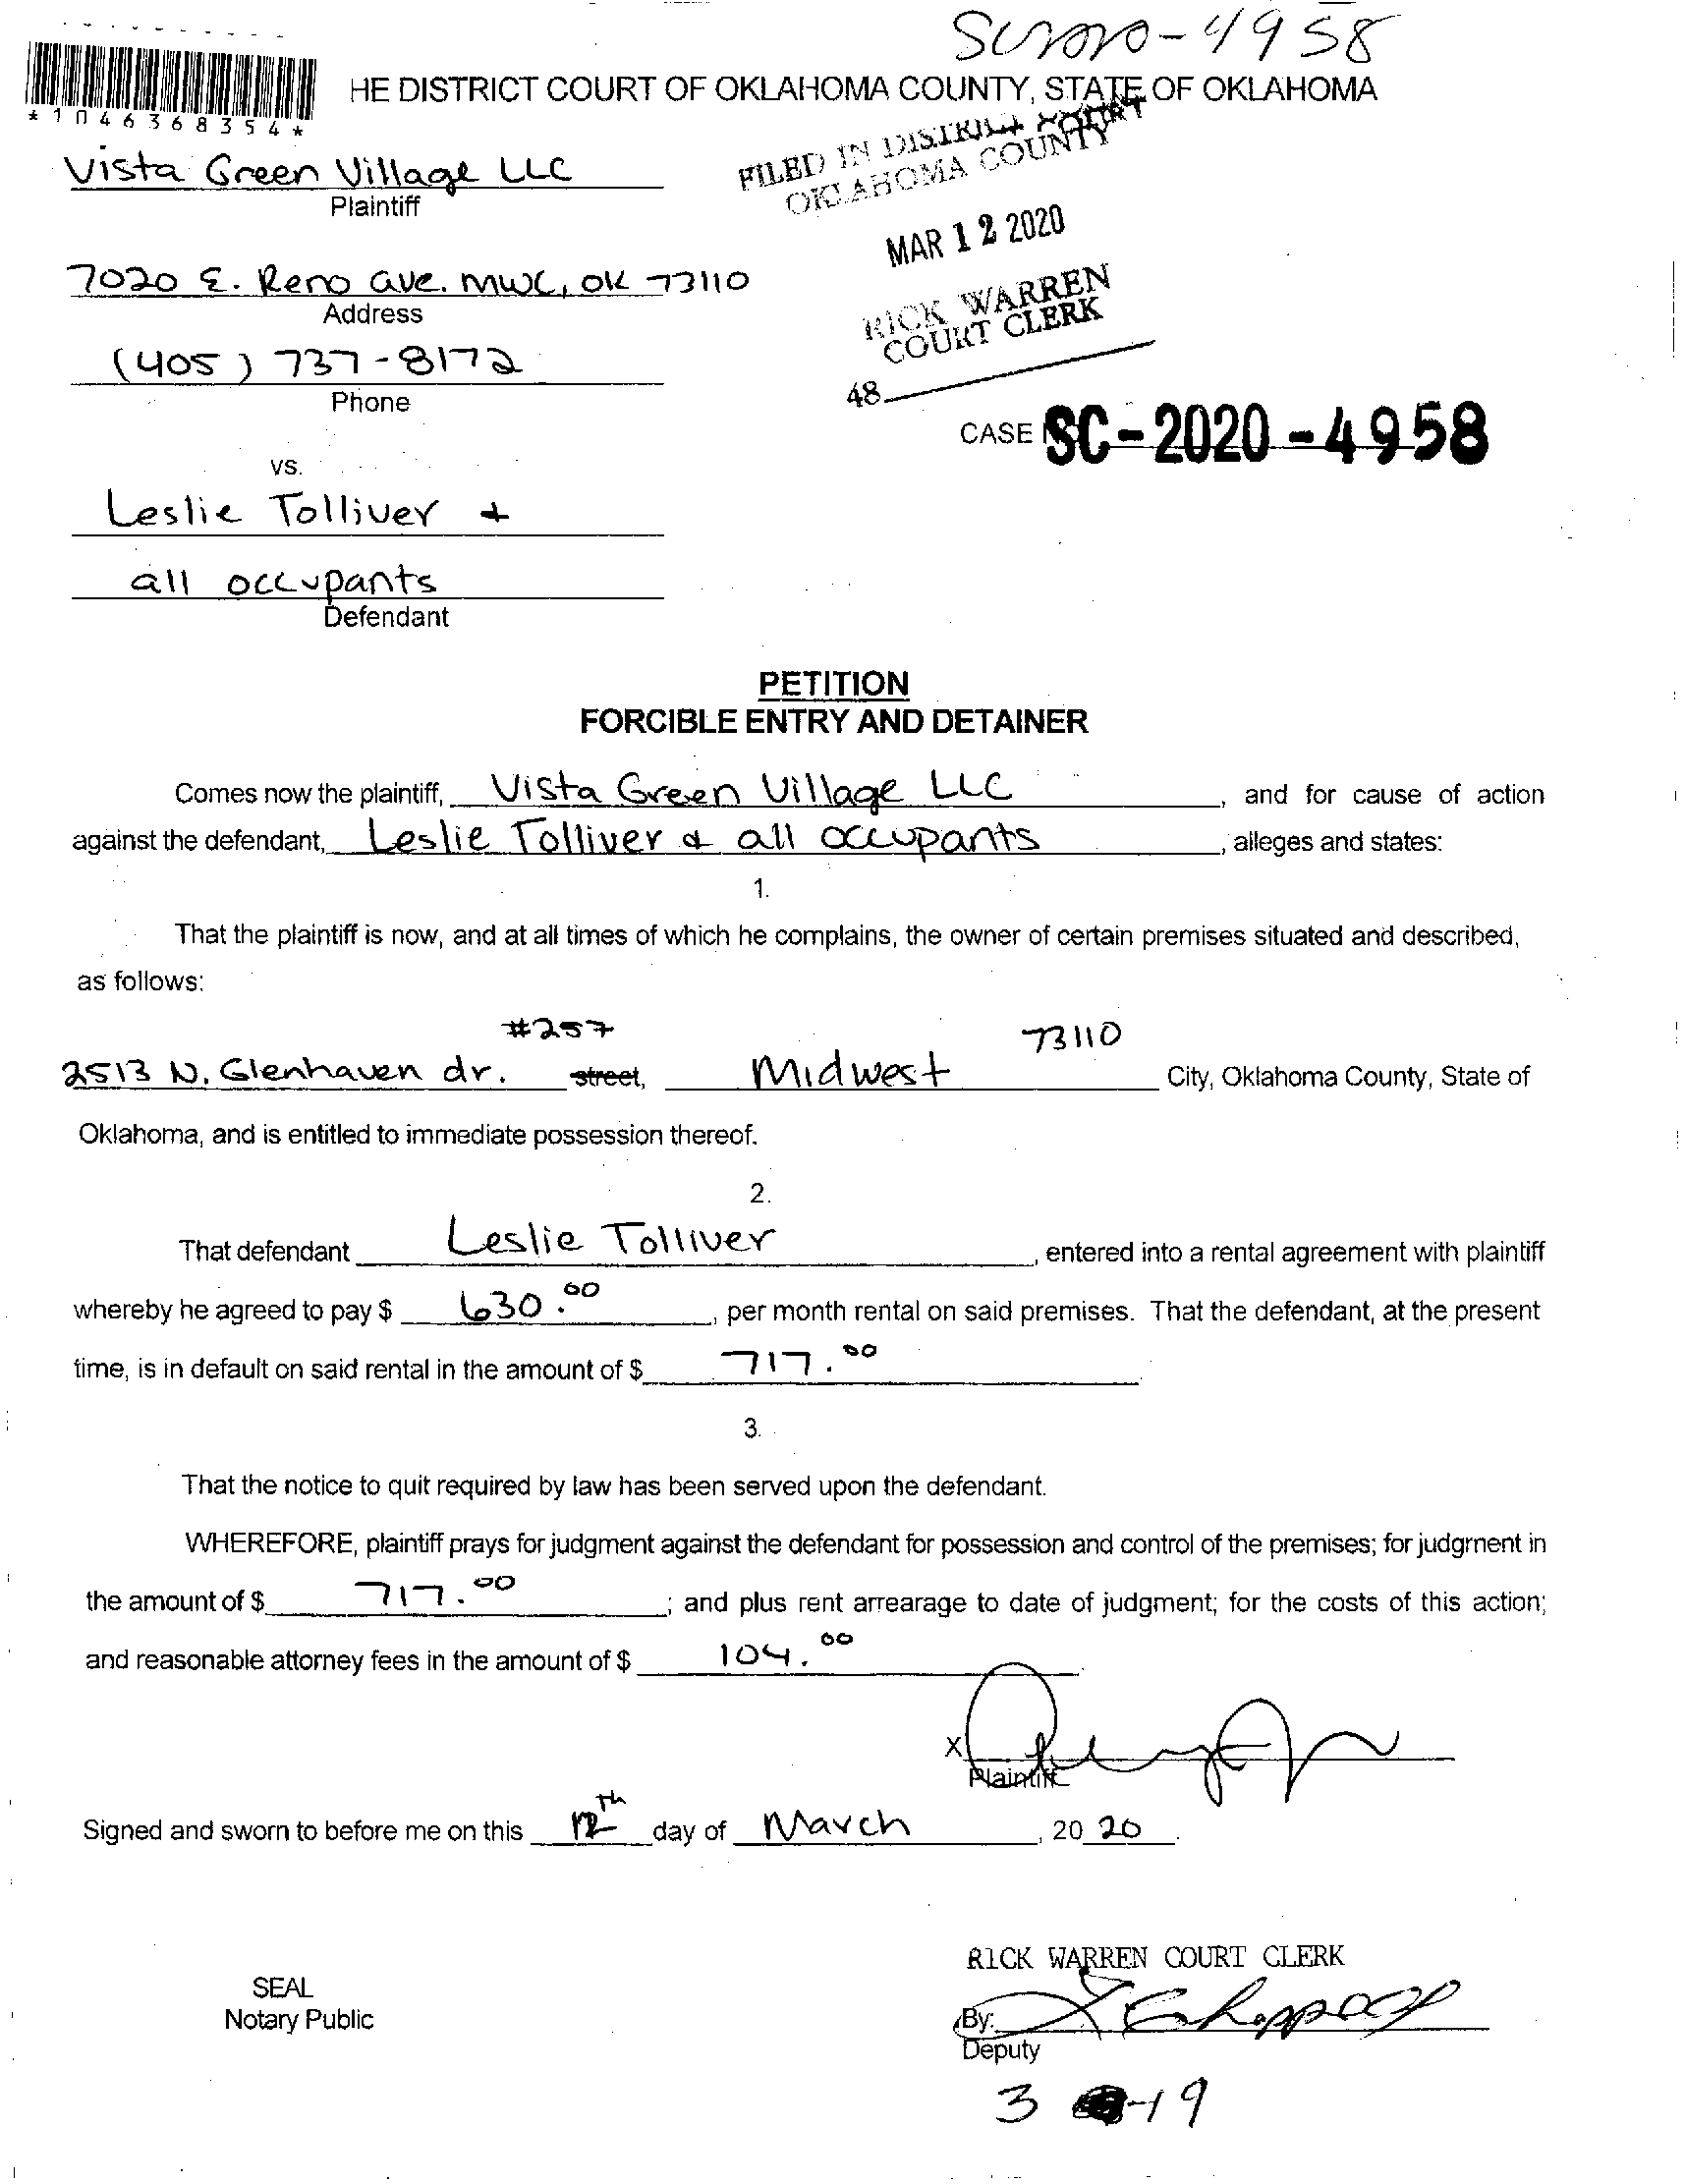 SC2020-4958
HE DISTRICT COURT OF OKLAHOMA COUNTY, STATE OF OKLAHOMA
*1046368354*
FILED IN DISTRICT COURT
OKLAHOMA COUNTY
MAR 12 2020
RICK WARREN
COURT CLERK
48
Vista Green Village LLC
Plaintiff
7020 E. Reno ave. MWC, OK 73110
Address
(405) 737-8172
Phone
CASE NO. SC-2020-4958
vs.
Leslie Tolliver +
all occupants
Defendant
PETITION
FORCIBLE ENTRY AND DETAINER
Comes now the plaintiff, Vista Green Village LLC, and for cause of action
against the defendant, Leslie Tolliver & all occupants, alleges and states:
1.
That the plaintiff is now, and at all times of which he complains, the owner of certain premises situated and described,
as follows:
#257 73110
2513 N. Glenhaven dr. street, Midwest City, Oklahoma County, State of
Oklahoma, and is entitled to immediate possession thereof.
2.
That defendant Leslie Tolliver, entered into a rental agreement with plaintiff
whereby he agreed to pay $ 630.00, per month rental on said premises. That the defendant, at the present
time, is in default on said rental in the amount of $ 717.00
3.
That the notice to quit required by law has been served upon the defendant.
WHEREFORE, plaintiff prays for judgment against the defendant for possession and control of the premises; for judgment in
the amount of $ 717.00; and plus rent arrearage to date of judgment; for the costs of this action;
and reasonable attorney fees in the amount of $ 104.00
X
Plaintiff
Signed and sworn to before me on this 12th day of March, 20 20.
RICK WARREN COURT CLERK
SEAL
Notary Public
By:
Deputy
3 -19